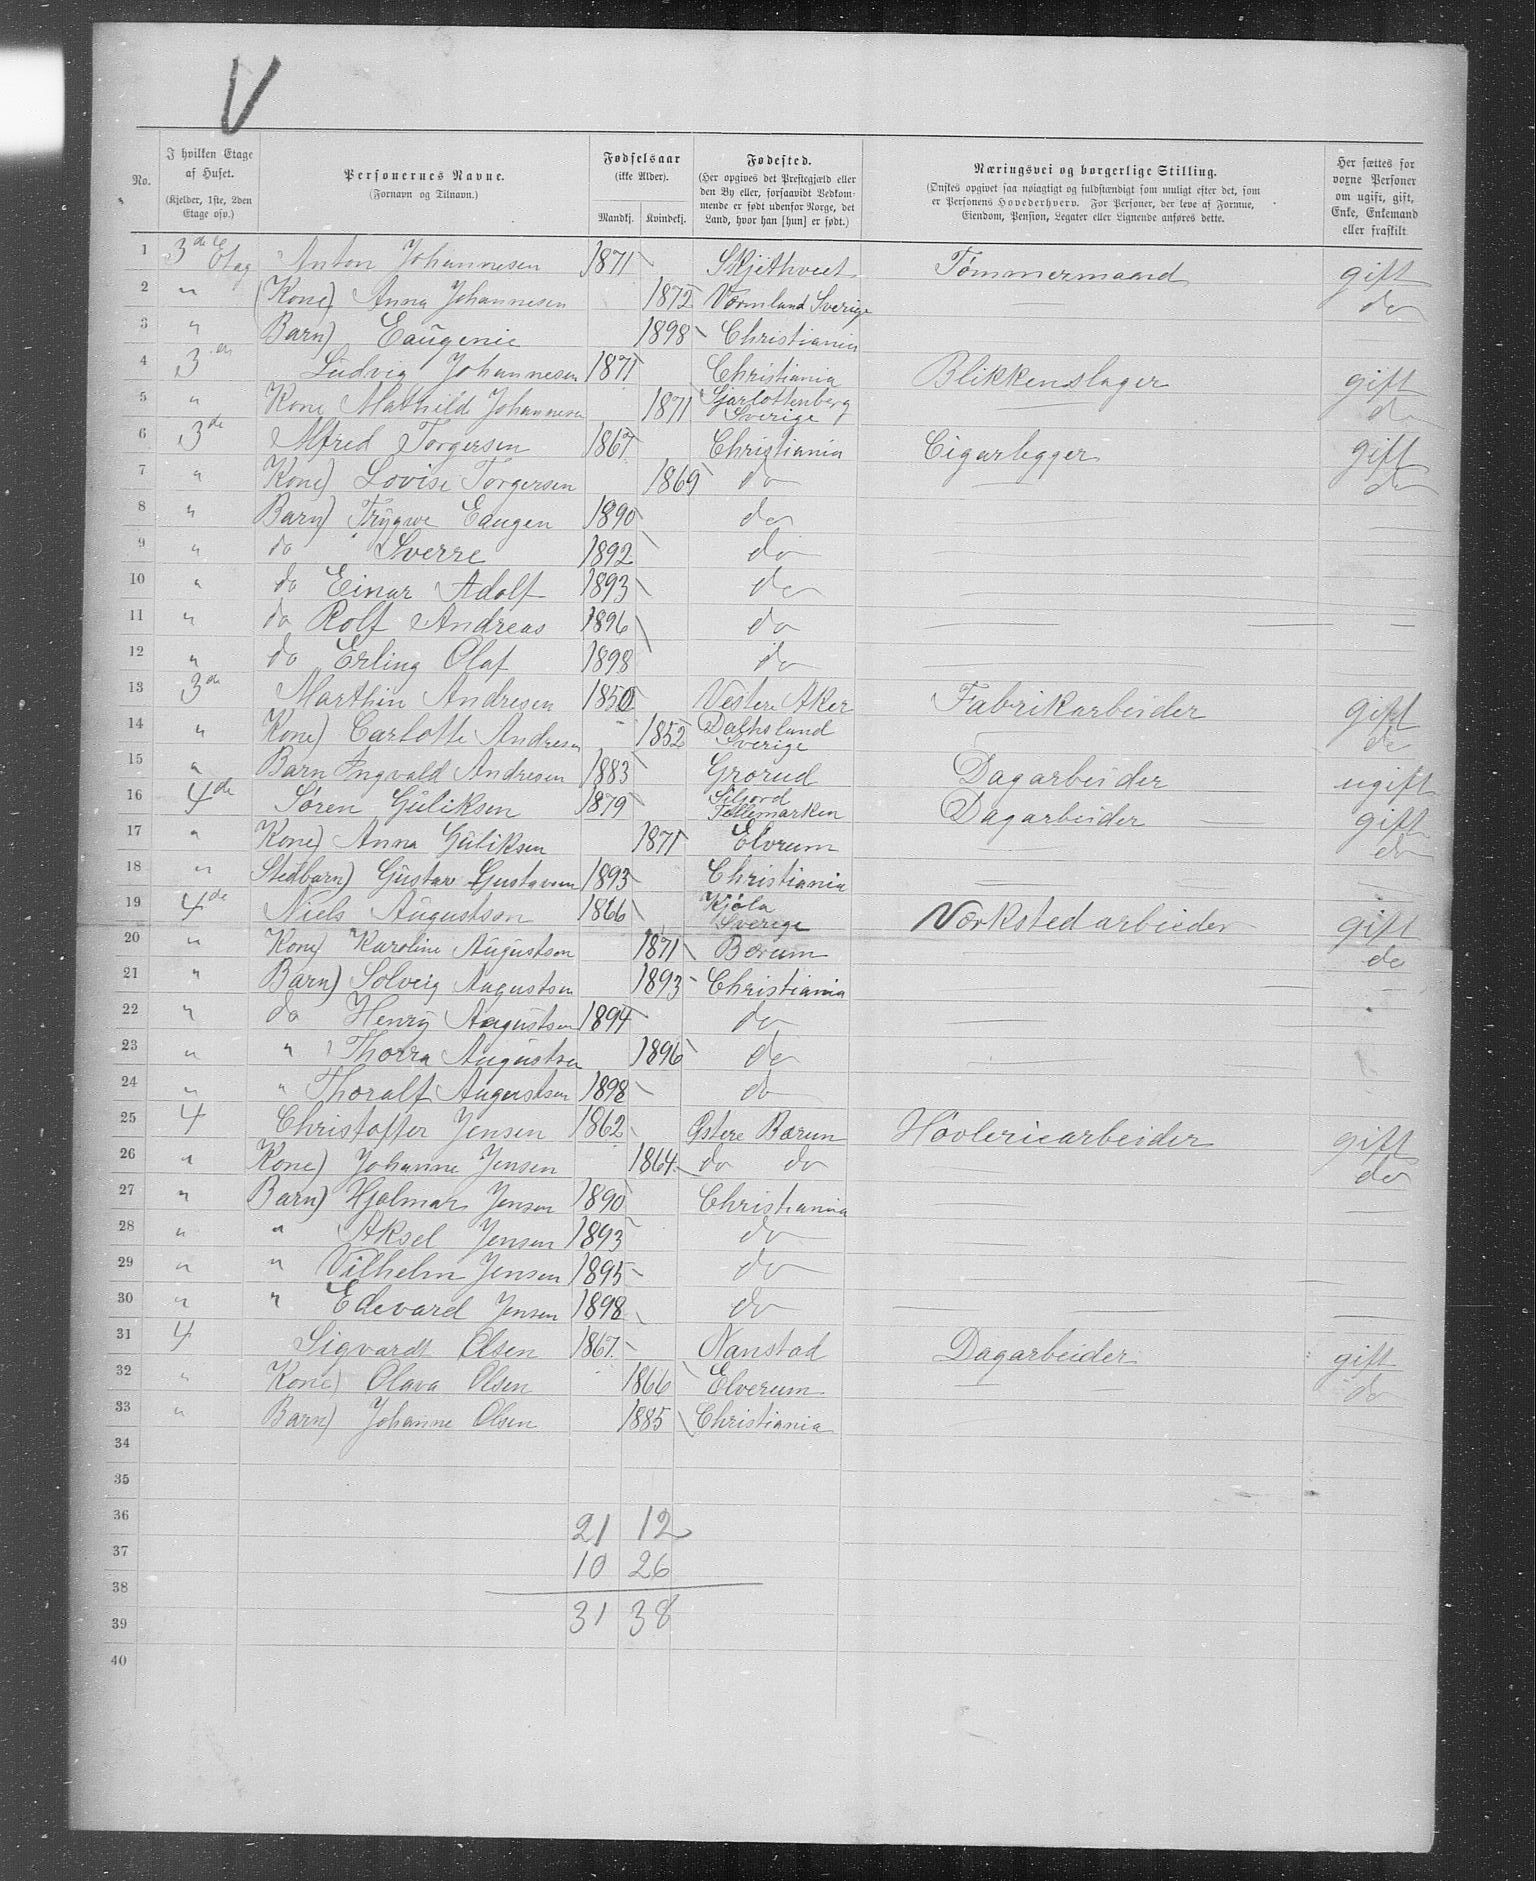 V
No.
I hvilken Etage af Huset. (Kjelder, 1ste, 2den Etage osv.)
Personernes Navne. (Fornavn og Tilnavn.)
Fødselsaar (ikke Alder). Mandkj. Kvindekj.
Fødested. (Her opgives det Prestegjæld eller den By eller, forsaavidt Vedkommende er født udenfor Norge, det Land, hvor han [hun] er født.)
Næringsvei og borgerlige Stilling. (Ønskes opgivet saa nøiagtigt og fuldstændigt som muligt efter det, som er Personens Hovederhverv. For Personer, der leve af Formue, Eiendom, Pension, Legater eller Lignende anføres dette.
Her sættes for voxne Personer om ugift, gift, Enke, Enkemand eller fraskilt
1 3de Etag Anton Johannesen 1871 Skjethveet Tømmermaand gift
2 " (Kone) Anna Johannesen 1872 Værmland Sverige do
3 " Barn) Eaugenie 1898 Christiania
4 3 Ludvig Johannesen 1871 Christiania Blikkenslager gift
5 " Kone Mathild Johannesen 1871 Sjarlottenberg Sverige do
6 3de Alfred Torgersen 1867 Christiania Cigarlegger gift
7 " Kone) Lovise Torgersen 1869 do do
8 " Barn) Trygwe Eaugen 1890 do
9 " do Sverre 1892 do
10 " do Einar Adolf 1893 do
11 " do Rolf Andreas 1896 do
12 " do Erling Olaf 1898 do
13 3de Marthin Andresen 1850 Vestere Aker Fabrikarbeider gift
14 " Kone) Carlotte Andresen 1852 Dalhsland Sverige do
15 " Barn Ingvald Andresen 1883 Grorud Dagarbeider ugift
16 4de Søren Guliksen 1879 Siljord Tellemarken Dagarbeider gift
17 " Kone) Anna Guliksen 1871 Elvrum do
18 " Stedbarn) Gustav Gustavsen 1893 Christiania
19 4de Niels Augustson 1866 Kjøla Sverige Værkstedarbeider gift
20 " Kone) Karoline Augustson 1871 Bærum do
21 " Barn) Solveig Augustsen 1893 Christiania
22 " do Henry Augustsen 1894 do
23 " " Thorra Augustsen 1896 do
24 " " Thoralf Augustsen 1898 do
25 4 Christoffer Jensen 1862 Østere Bærum Høvlericarbeider gift
26 " Kone) Johanne Jensen 1864 do do do
27 " Barn) Hjalmar Jensen 1890 Christiania
28 " " Aksel Jensen 1893 do
29 " " Vilhelm Jensen 1895 do
30 " " Edevard Jensen 1898 do
31 4 Sigvardt Olsen 1867 Nanstad Dagarbeider gift
32 " Kone) Olava Olsen 1866 Elverum do
33 " Barn) Johanne Olsen 1885 Christiania
34
35
36 21 12
37 10 26
38
39 31 38
40